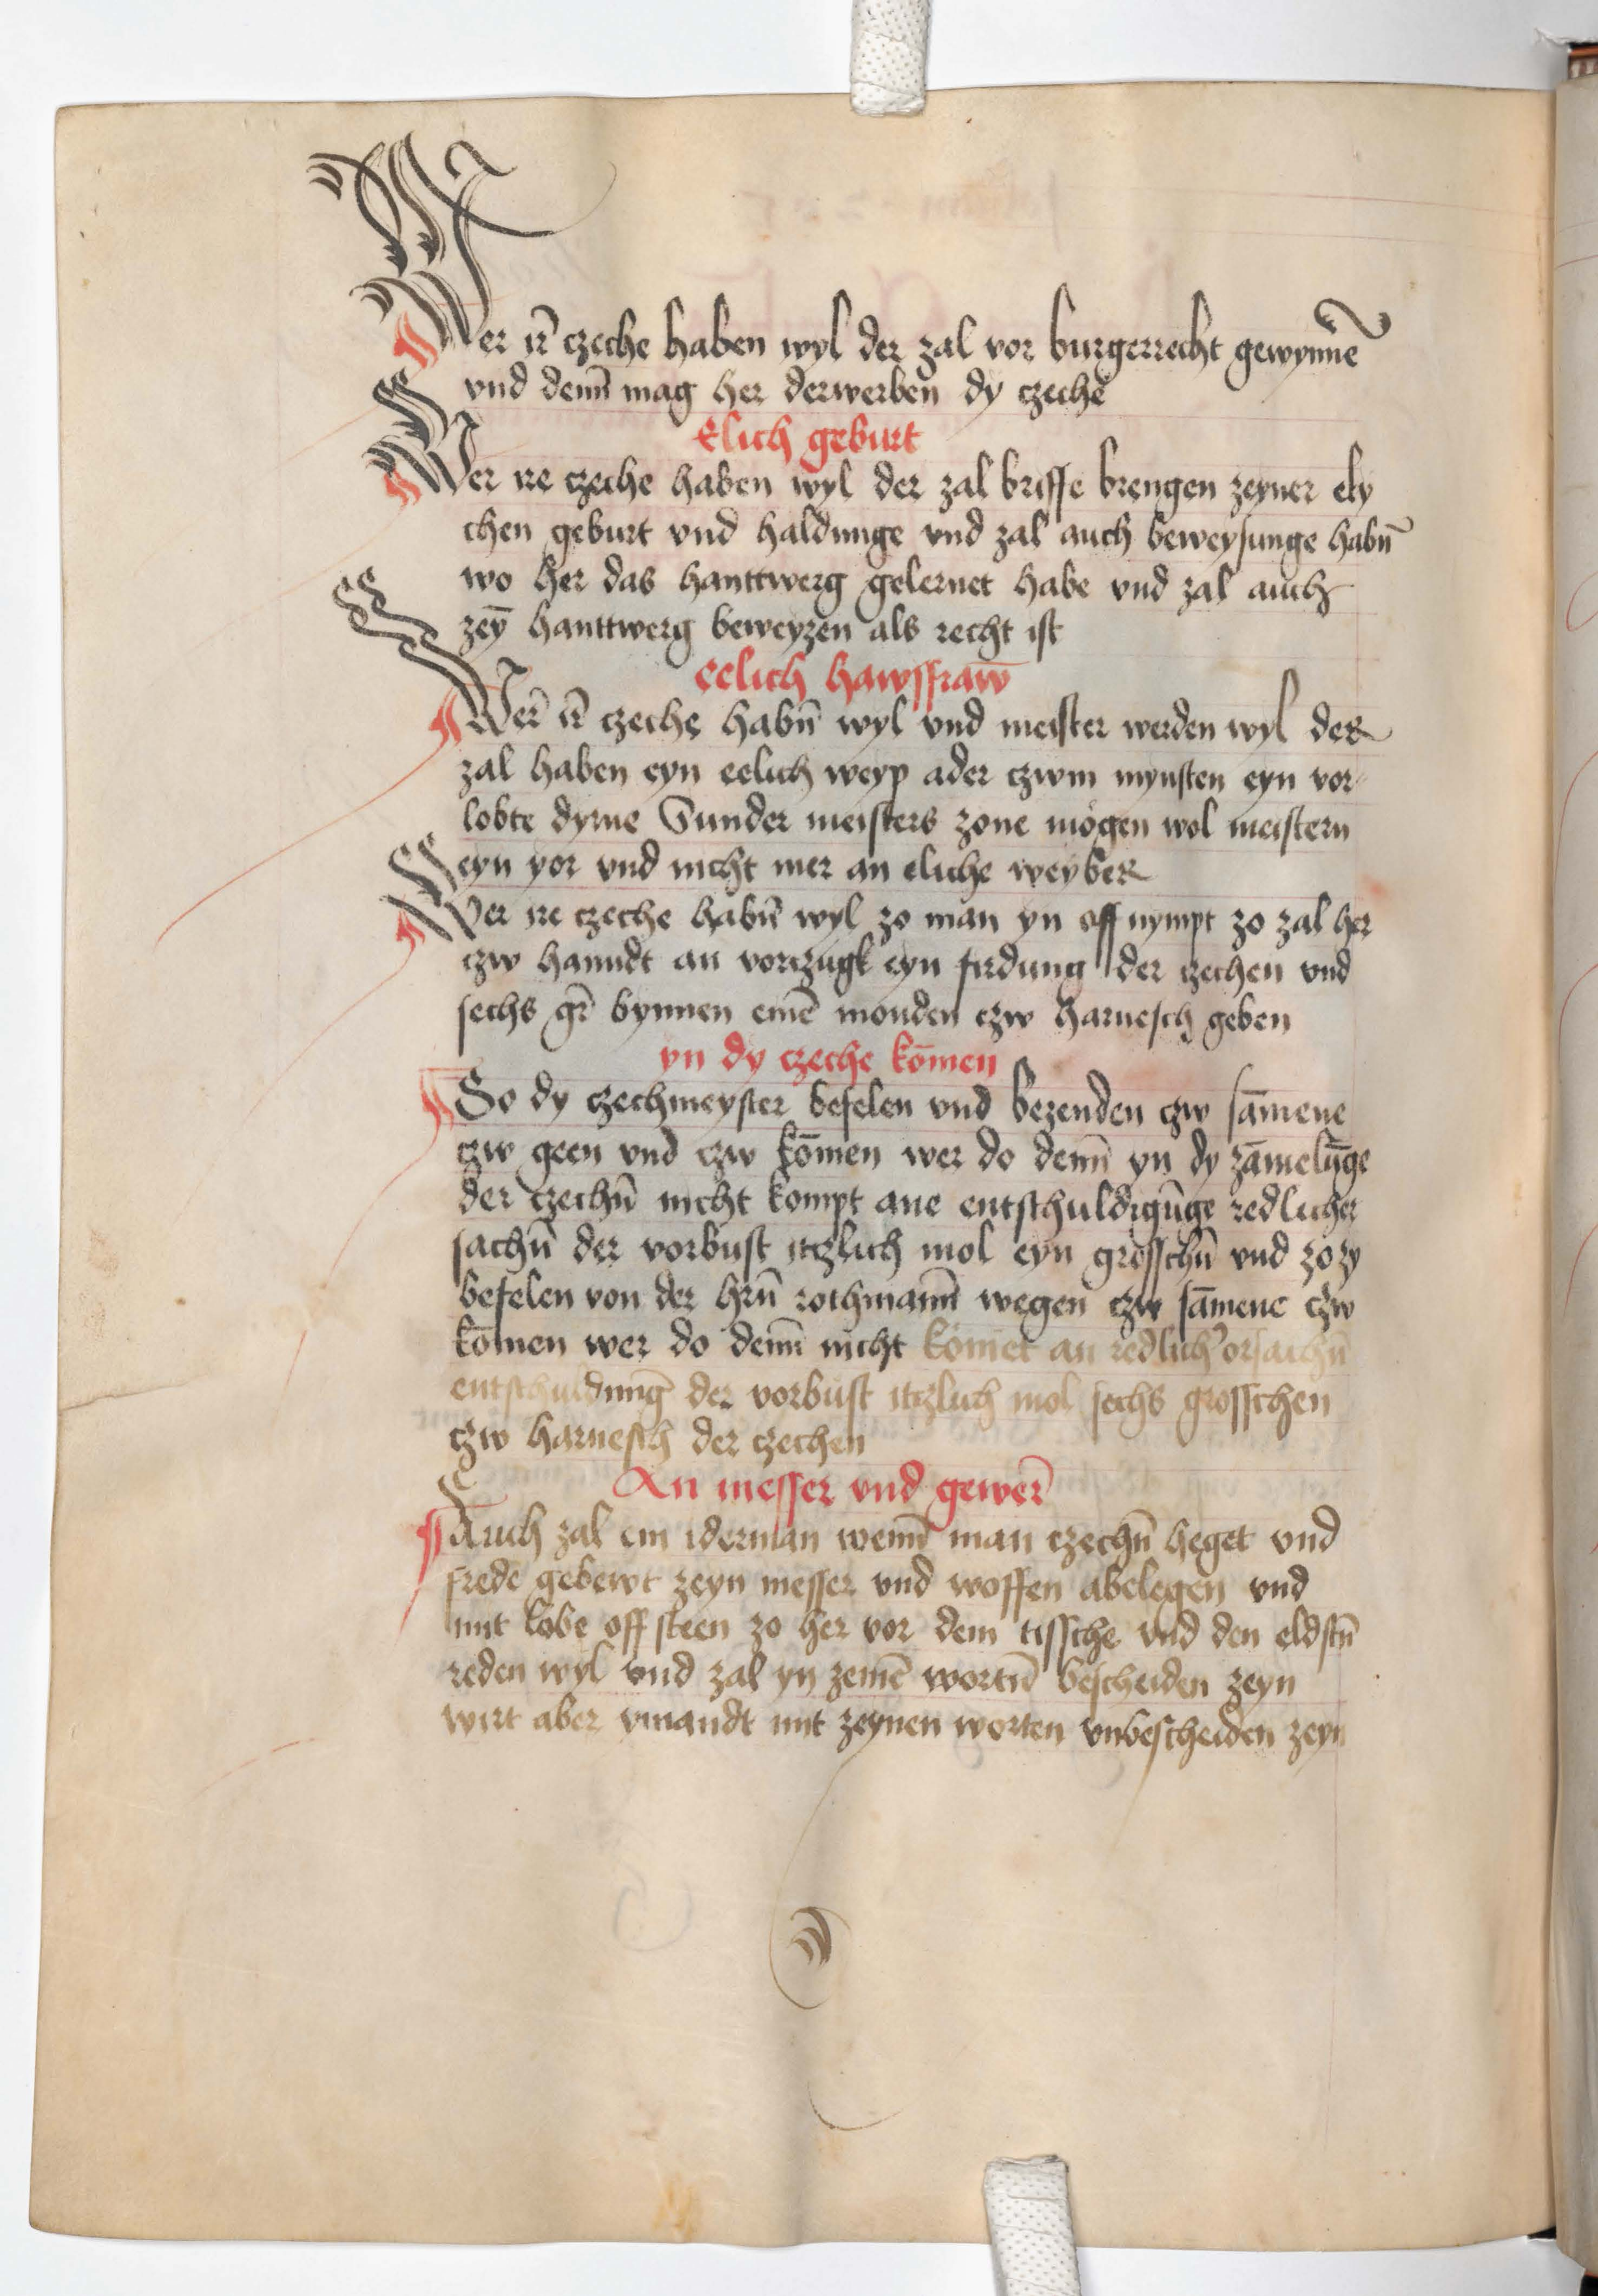 Wer ir̄ czeche haben wyl der zal vor burgerrecht gewynne̅
vnd den̄n mag her derwerben dy czeche
Elich geburt
Wer ire czeche haben wyl der zal briffe brengen zeyner ely
chen geburt vnd haldunge vnd zal auch beweysunge habn̄
wo her das hanttwerg gelernet habe vnd zal auch
zey̅ hanttwerg beweyzen als recht ist
eelich hawsfraw̅
Wer̄ ir̄ czeche habn̄ wyl vnd meister werden wyl der
zal haben eyn eelich weyp ader czwm mynsten eyn vor
lobte dyrne Sunder meisters zone mögen wol meistern
eyn yor vnd nicht mer an eliche weyber
Wer ire czeche habn̄ wyl zo man yn off nympt zo zal her
czw hanndt an vorczugk eyn firdung der czechen vnd
sechs gr̄ bynnen eine̅ monden czw harnesch geben
yn dy czeche ko̅men
So dy czechmeyster befelen vnd bezenden czw sa̅mene
czw geen vnd czw ko̅men wer do den̄n yn dy za̅melu̅ge
der czechn̄ nicht kompt ane entschuldigu̅ge redlicher
sachn̄ der vorbust itzlich mol eyn grosschn̄ vnd zo zy
befelen von der hrn̄ rothman̄n wegen czw sa̅mene czw
ko̅men wer do den̄n nicht kömet an redlich' orsachn̄
entschuldung̅ der vorbust itzlich mol sechs grosschen
czw harnesch der czechen
An messer vnd gewer̄
Auch zal ein iderman wen̄n man czechn̄ heget vnd
frede gebewt zeyn messer vnd woffen abelegen vnd
mit lobe off steen zo her vor dem tissche vnd den eldstn̄
reden wyl vnd zal yn zeine̅ wortn̄ bescheiden zeyn
wirt aber ymandt mit zeynen worten vnbescheiden zeyn